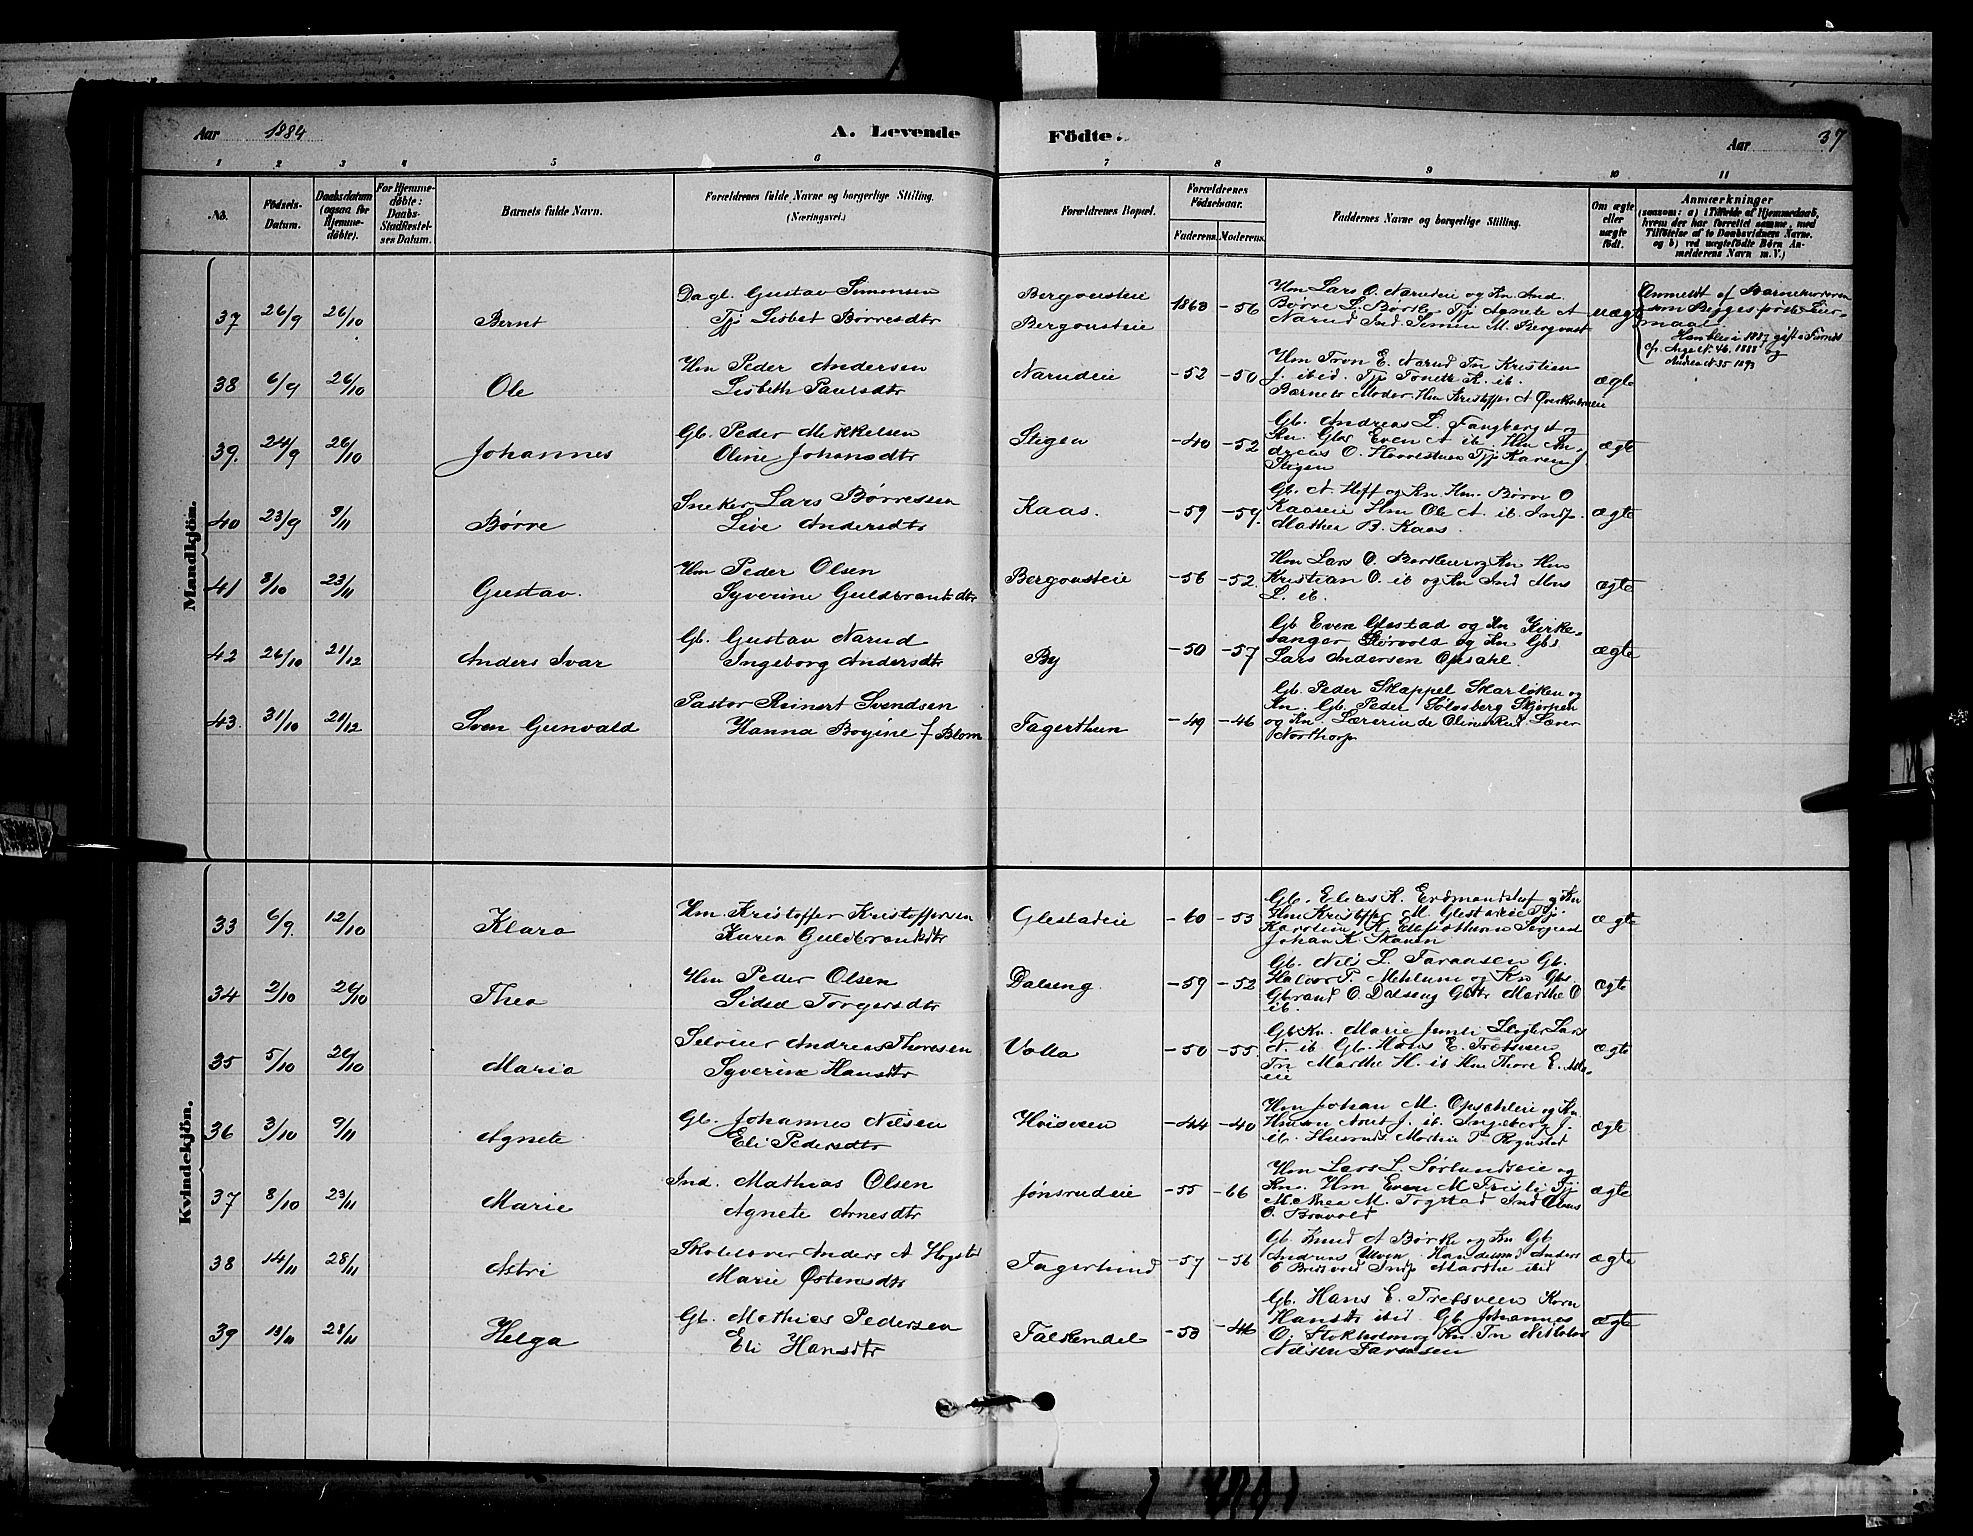 Aar 1884 A. Levende Födte. Aar 37
1 2 3 4 5 6 7 8 9 10 11
No.
Födsels-Datum.
Daabsdatum (ogsaa for Hjemme-döbte).
For Hjemme-döbte: Daabs-Stadfæstel-ses Datum.
Barnets fulde Navn.
Forældrenes fulde Navne og borgerlige Stilling. (Næringsvei.)
Forældrenes Bopæl.
Forældrenes Födselsaar.
Faderens. Moderens.
Faddernes Navne og borgerlige Stilling.
Om ægte eller uægte födt.
Anmærkninger
(saasom: a) i Tilfælde af Hjemmedaab,
hvem der har forrettet samme, med
Tilföielse af to Daabsvidners Navne.
og b) ved uægtefödte Börn An-
melderens Navn m. V.)
Mandkjön.
37 26/9 26/10 Bernt
Dagl. Gustav Simensen
Tj. Lisbet Børresdtr
Bergouseie
Bergouseie
1863 -56
Hm Lars O. Narudeie og Kn. Ind.
Børre L. Børtle Tj. Agnete A
Narud Ind. Simen M. Bergoust
uægte
Anmeldt af Barnemoderen
som Begges første Leier-
maal.
38 6/9 26/10 Ole
Hm Peder Andersen
Lisbeth Paulsdtr
Narudeie -52 -50
Hm Tron E. Narud Tn Kristian
J. ibid. Tj. Tonette K. ib.
Barnets Moder Hm Kristoffer A
ægte
39. 24/9 26/10 Johannes
Gb. Peder Mikkelsen
Oline Johansdtr
Stigen -40 -52
Gb. Andreas L. Fangberget og
Kn. Gbs Even A ib. Hm An-
dreas O. Tj. Karen J.
Stigen
ægte
40 23/9 9/11 Børre
Sneker Lars Børresen
Live Andersdtr
Kaas. -59 -59.
Gb. A. Hoff og Kn. Hm. Børre O
Kaaseie Hm Ole A. ib. Indp.
Mathea B. Kaas.
ægte
41 8/10 23/11 Gustav.
Hm Peder Olsen
Syverine Guldbrantsdtr
Bergouseie -56 -52.
Hm Lars O. og Kn Hm
Kristian O. ib og Kn Ind Mons
L. ib.
ægte
42 26/10 21/12 Anders Ivar
Gb. Gustav Narud
Ingeborg Andersdtr
By -50 -57
Gb Even Glestad og Kn Kirke-
sanger Størvold og Kn Gbs
Lars Andersen Opsahl.
ægte
43. 31/10 21/12 Sven Gunvald
Pastor Reinert Svendsen
Hanna Bogine f. Blom
Fagerthun -49 -46
Gb. Peder Skappel Skarløken og
Kn. Gb. Peder Solosberg Skjerpen
og Kn. Lærerinde Lærer
Northorp
Kvindekjön.
33 6/9. 12/10 Klara
Hm. Kristoffer Kristoffersen
Karen Guldbrantsdtr
Glestadeie -60 -53
Gb. Elias K. og Kn
Hm Kristoffer M. Glestadeie Tj.
Karoline K.
Johan K. Skauen
ægte
34 2/10 26/10 Thea
Hm Peder Olsen
Sidsel Torgersdtr
Dalseng. -59 -52
Gb. Nils L. Faraasen Gb.
Halvor P. Mehlum og Kn Gbs
Gbrand O. Dalseng Gbdtr Marthe O
ib.
ægte
35 5/10 26/10 Maria
Andreas Thoresen
Syverine Hansdtr
Volla -50 -55.
Gbkn. Marie Lars
N. ib Gb. Hans E. Trefsveen
Tn Marthe H. ib Hm Thore E.
ægte
36 3/10 9/11 Agnete
Gb. Johannes Nilsen
Eli Pedersdtr
Høisveen -44 -40
Hm Johan M. Opsahleie og Kn.
J. ib. Ingeborg J.
ib. P Rognstad
ægte
37 8/10 23/11 Marie
Ind. Mathias Olsen
Agnete Arnesdtr
Jønsrudeie -55 -66
Hm Lars L. Sørlundseie og
Kn. Hm Even M Tj
Mathea M. Togstad Ind
O. Bravold
ægte
38 14/11 28/11 Astri
Skolelærer Anders A
Marie Østensdtr
Fagerlund -57 -56
Gb. Knud A Børke og Kn Gb
Andreas Anders
Indp Marthe ibid
ægte
39 13/11 28/11 Helga
Gb. Mathias Pedersen
Eli Hansdtr
Falkendel -50 -46
Gb. Hans E. Trefsveen Karn
Hansdtr ibid Gb Johannes
O. Stokholm og Kn. Tn
Nilsen Faraasen
ægte